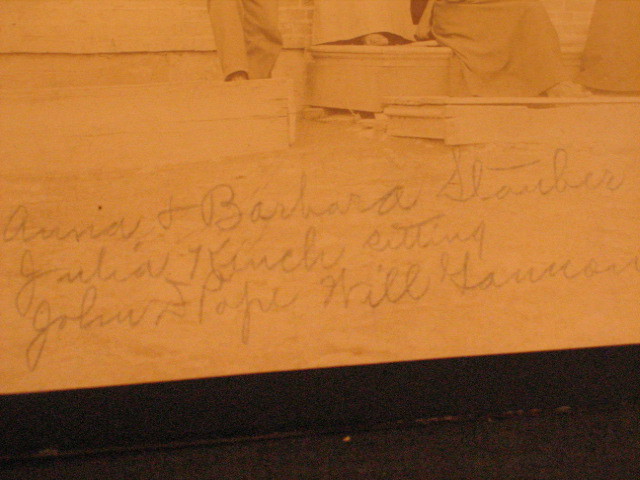 Anna & Barbara Stauber
Julia Kinch sitting
John Pope Will Gannon